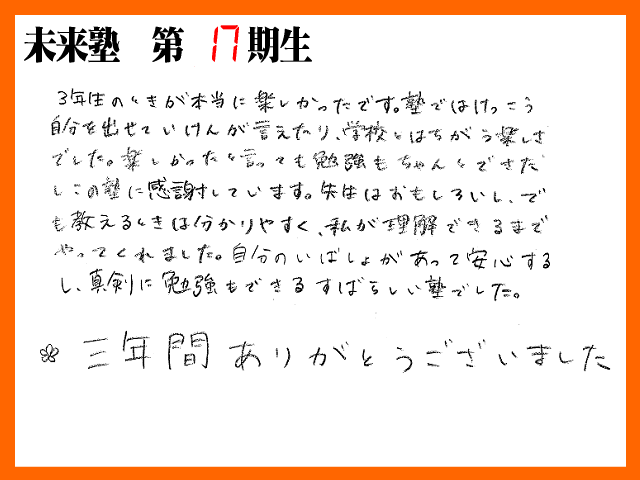 未来塾 第 17 期生
3年生のときが本当に楽しかったです。塾ではけっこう
自分を出せていけんが言えたり、学校とはちがう楽しさ
でした。楽しかったと言っても勉強もちゃんとできた
しこの塾に感謝しています。先生はおもしろいし、で
も教えるときは分かりやすく、私が理解できるまで
やってくれました。自分のいばしょがあって安心する
し、真剣に勉強もできるすばらしい塾でした。
三年間ありがとうございました